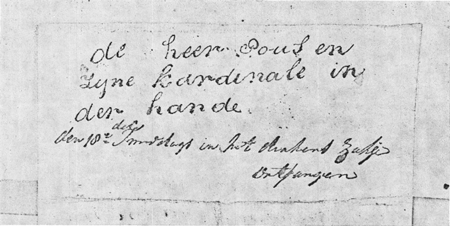 de heer Pous en
Zyne kardinale in
der hande.
den 18e deser smiddags in het
Ontfangen